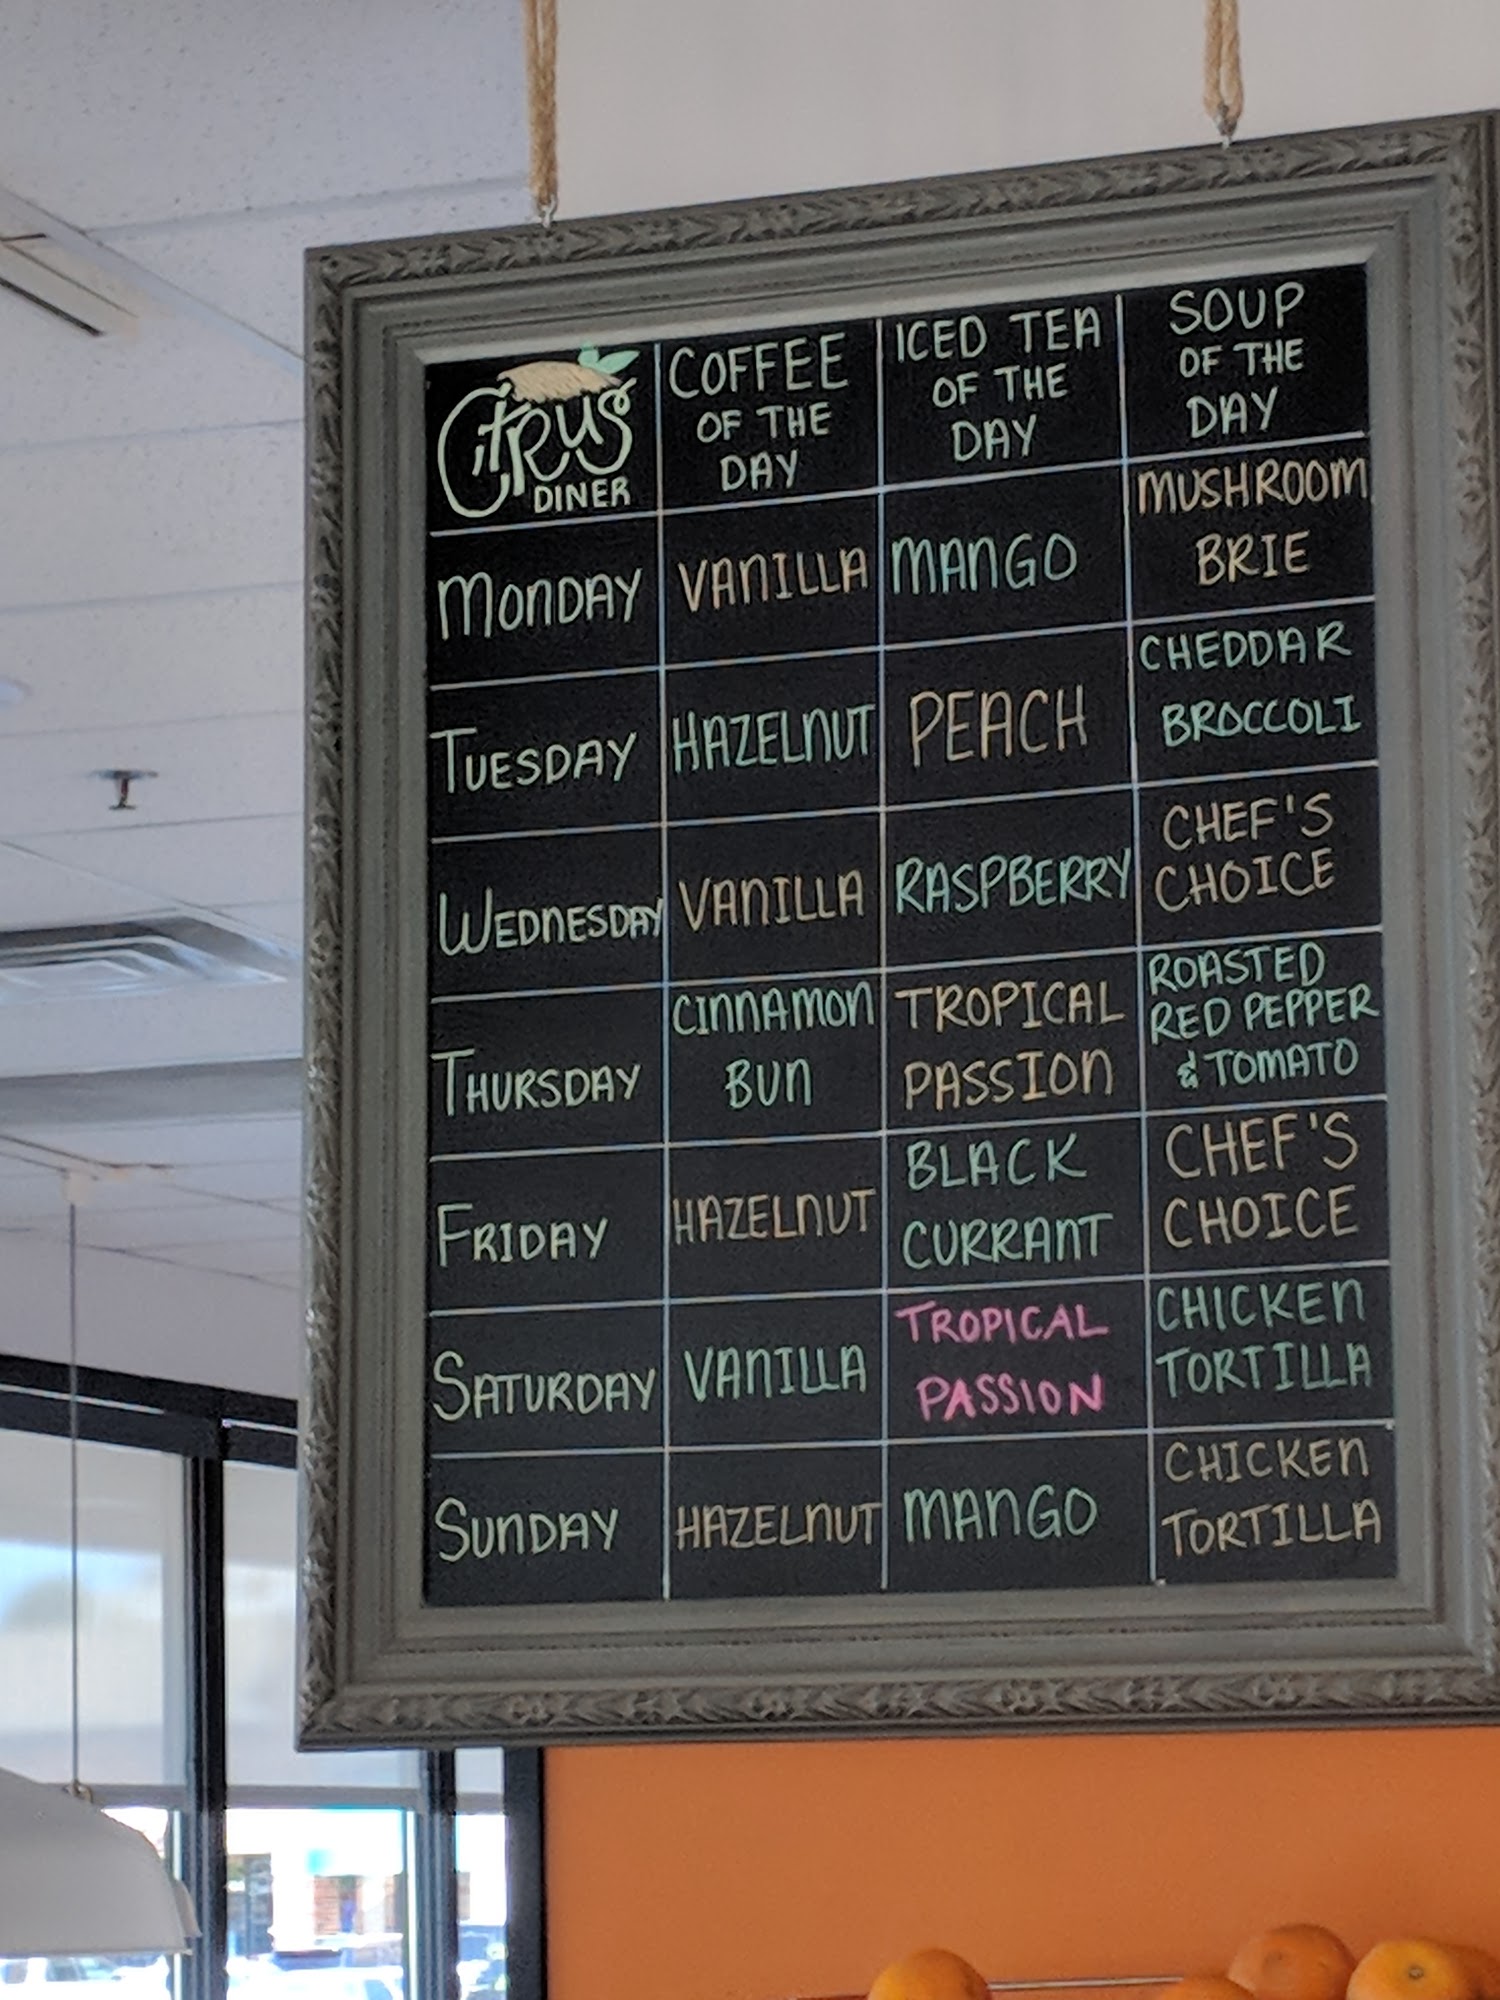 Citrus
DINER
COFFEE
OF THE
DAY
ICED TEA
OF THE
DAY
SOUP
OF THE
DAY
MONDAY
VANILLA
MANGO
MUSHROOM
BRIE
TUESDAY
HAZELNUT
PEACH
CHEDDAR
BROCCOLI
WEDNESDAY
VANILLA
RASPBERRY
CHEF'S
CHOICE
THURSDAY
CINNAMON
BUN
TROPICAL
PASSION
ROASTED
RED PEPPER
& TOMATO
FRIDAY
HAZELNUT
BLACK
CURRANT
CHEF'S
CHOICE
SATURDAY
VANILLA
TROPICAL
PASSION
CHICKEN
TORTILLA
SUNDAY
HAZELNUT
MANGO
CHICKEN
TORTILLA